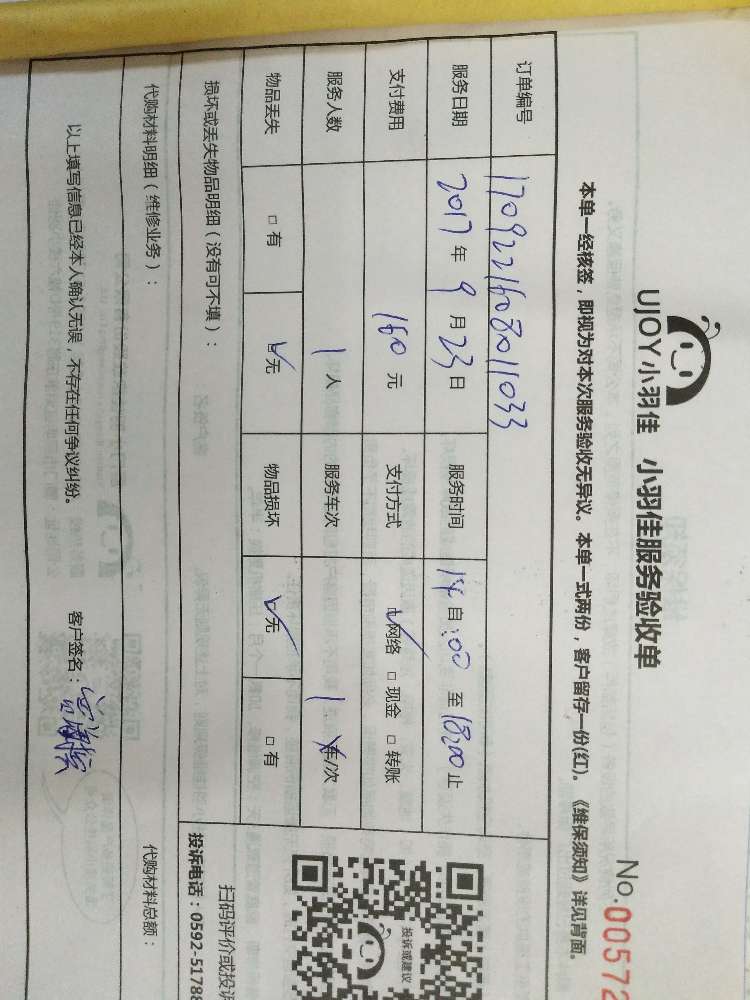 UJOY小羽佳 小羽佳服务验收单
No.00572
本单一经核签，即视为对本次服务验收无异议。本单一式两份，客户留存一份(红)。《维保须知》详见背面。
订单编号 1709221608011033
服务日期 2017年9月23日 服务时间 14自:00至18:00止
支付费用 160元 支付方式 网络 □现金 □转账
服务人数 1人 服务车次 1车/次
物品丢失 □有 无 物品损坏 无 □有
损坏或丢失物品明细（没有可不填）：
投诉或建议
扫码评价或投诉
投诉电话：0592-51788
代购材料明细（维修业务）： 代购材料总额：
以上填写信息已经本人确认无误，不存在任何争议纠纷。 客户签名：